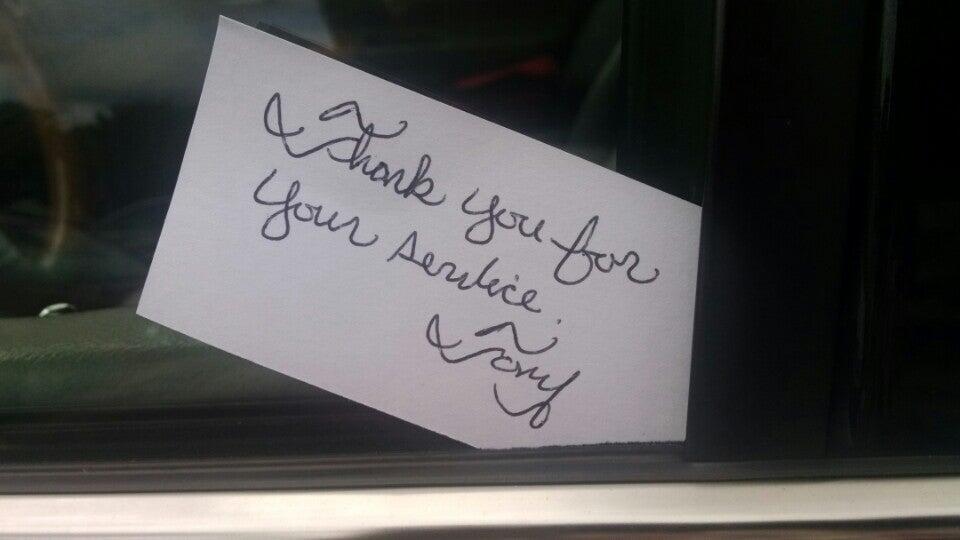 Thank you for
your service.
Tony